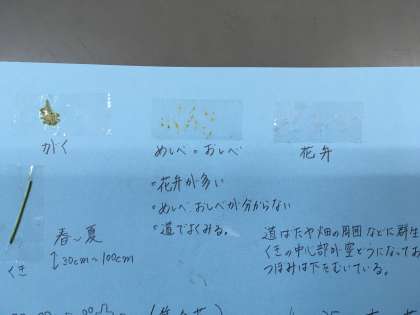 がく
めしべ。おしべ
花弁
くき
春〜夏
30cm〜100cm
。花弁が多い
。めしべ、おしべが分からない
。道でよくみる。
道ばたや畑の周囲などに群生
くきの中心部外空どうになってお
つぼみは下をむいている。